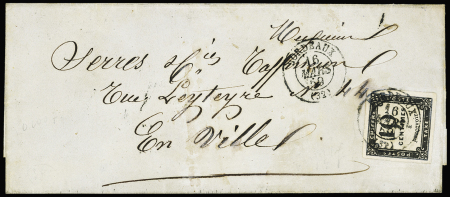 Monsieur
Serres & Cie
Rue Leyteyre 44
En Ville
BORDEAUX
16
MARS
59
(32)
10
CENTIMES